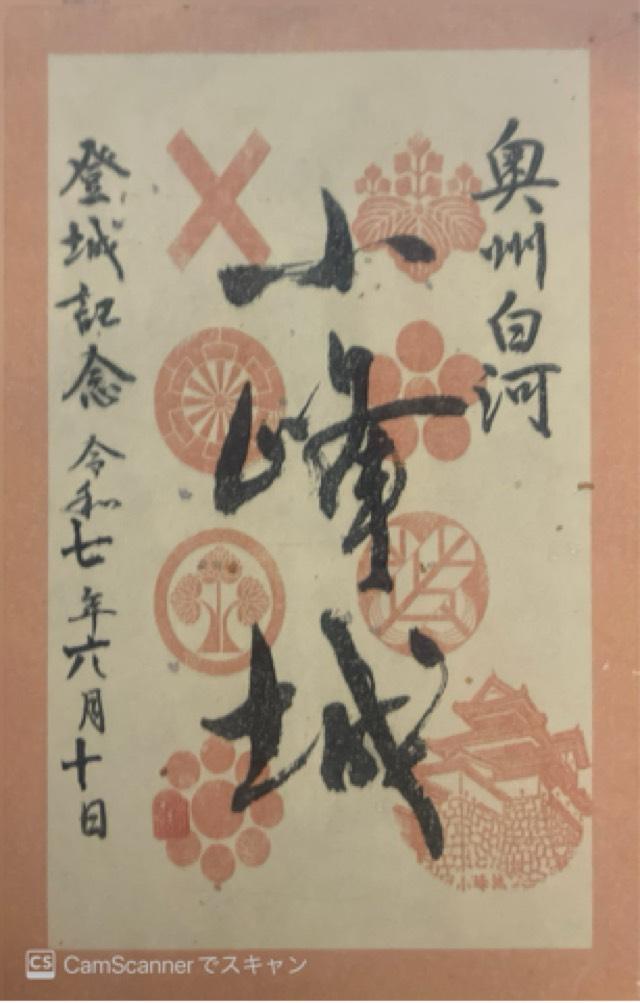 奥州白河
小峰城
登城記念 令和七年六月十日
小峰城
CS CamScannerでスキャン